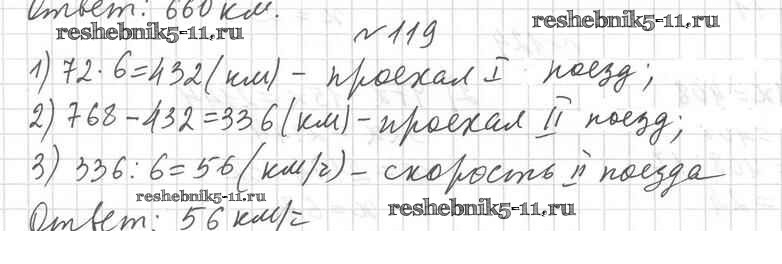 Ответ: 660 км.
reshebnik5-11.ru
reshebnik5-11.ru
№119
1) 72·6=432(км) – проехал I поезд;
2) 768-432=336(км)-проехал II поезд;
3) 336:6=56(км/ч) – скорость II поезда
reshebnik5-11.ru
reshebnik5-11.ru
Ответ: 56 км/ч